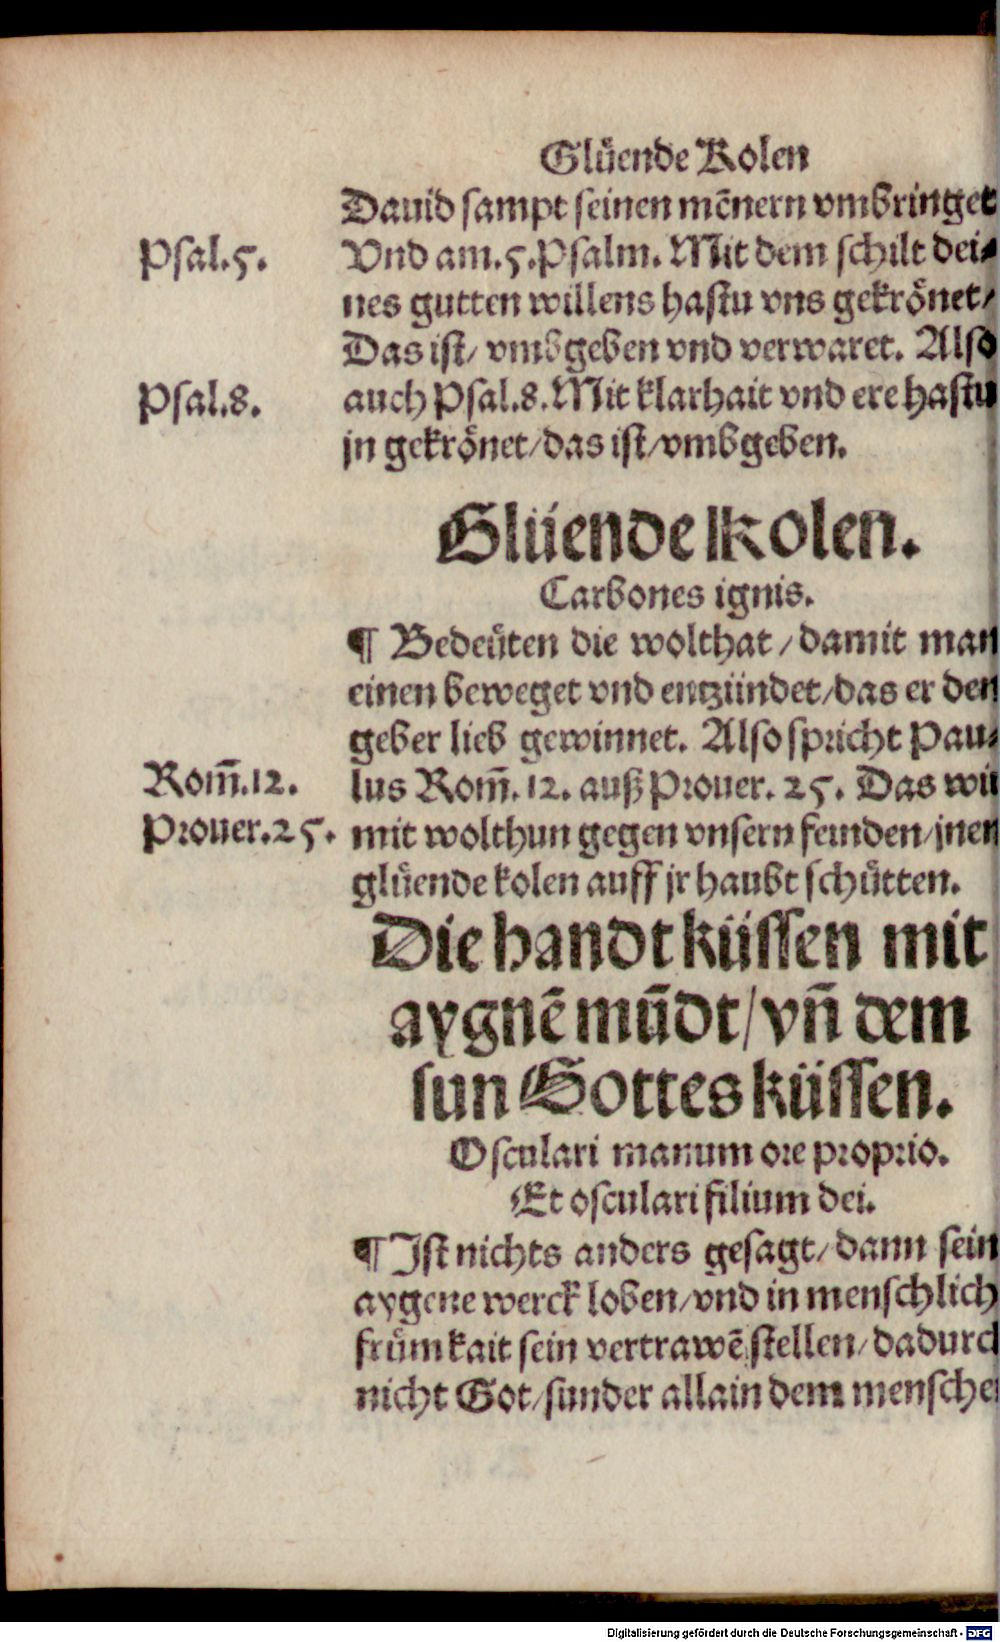 Glüende Kolen
Dauid sampt seinen mēnern vmbringet
Psal.5.
Vnd am.5.Psalm. Mit dem schilt dei⸗
nes gutten willens hastu vns gekrönet/
Das ist/ vmbgeben vnd verwaret. Also
Psal.8.
auch Psal.8. Mit klarhait vnd ere hastu
jn gekrönet/das ist/vmbgeben.
Glüende Kolen.
Carbones ignis.
¶ Bedeüten die wolthat/damit man
einen beweget vnd entzündet/das er den
geber lieb gewinnet. Also spricht Pau⸗
Rom̄.12.
lus Rom̄. 12. auß Prouer. 25. Das wir
Prouer.25.
mit wolthun gegen vnsern feinden/jnen
glüende kolen auff jr haubt schütten.
Die handt küssen mit
aygnē mūdt/vn̄ dem
sun Gottes küssen.
Osculari manum ore proprio.
Et osculari filium dei.
¶ Ist nichts anders gesagt/dann sein
aygene werck loben/vnd in menschlich
frümkait sein vertrawē stellen/dadurch
nicht Got/sunder allain dem mensche
Digitalisierung gefördert durch die Deutsche Forschungsgemeinschaft - DFG